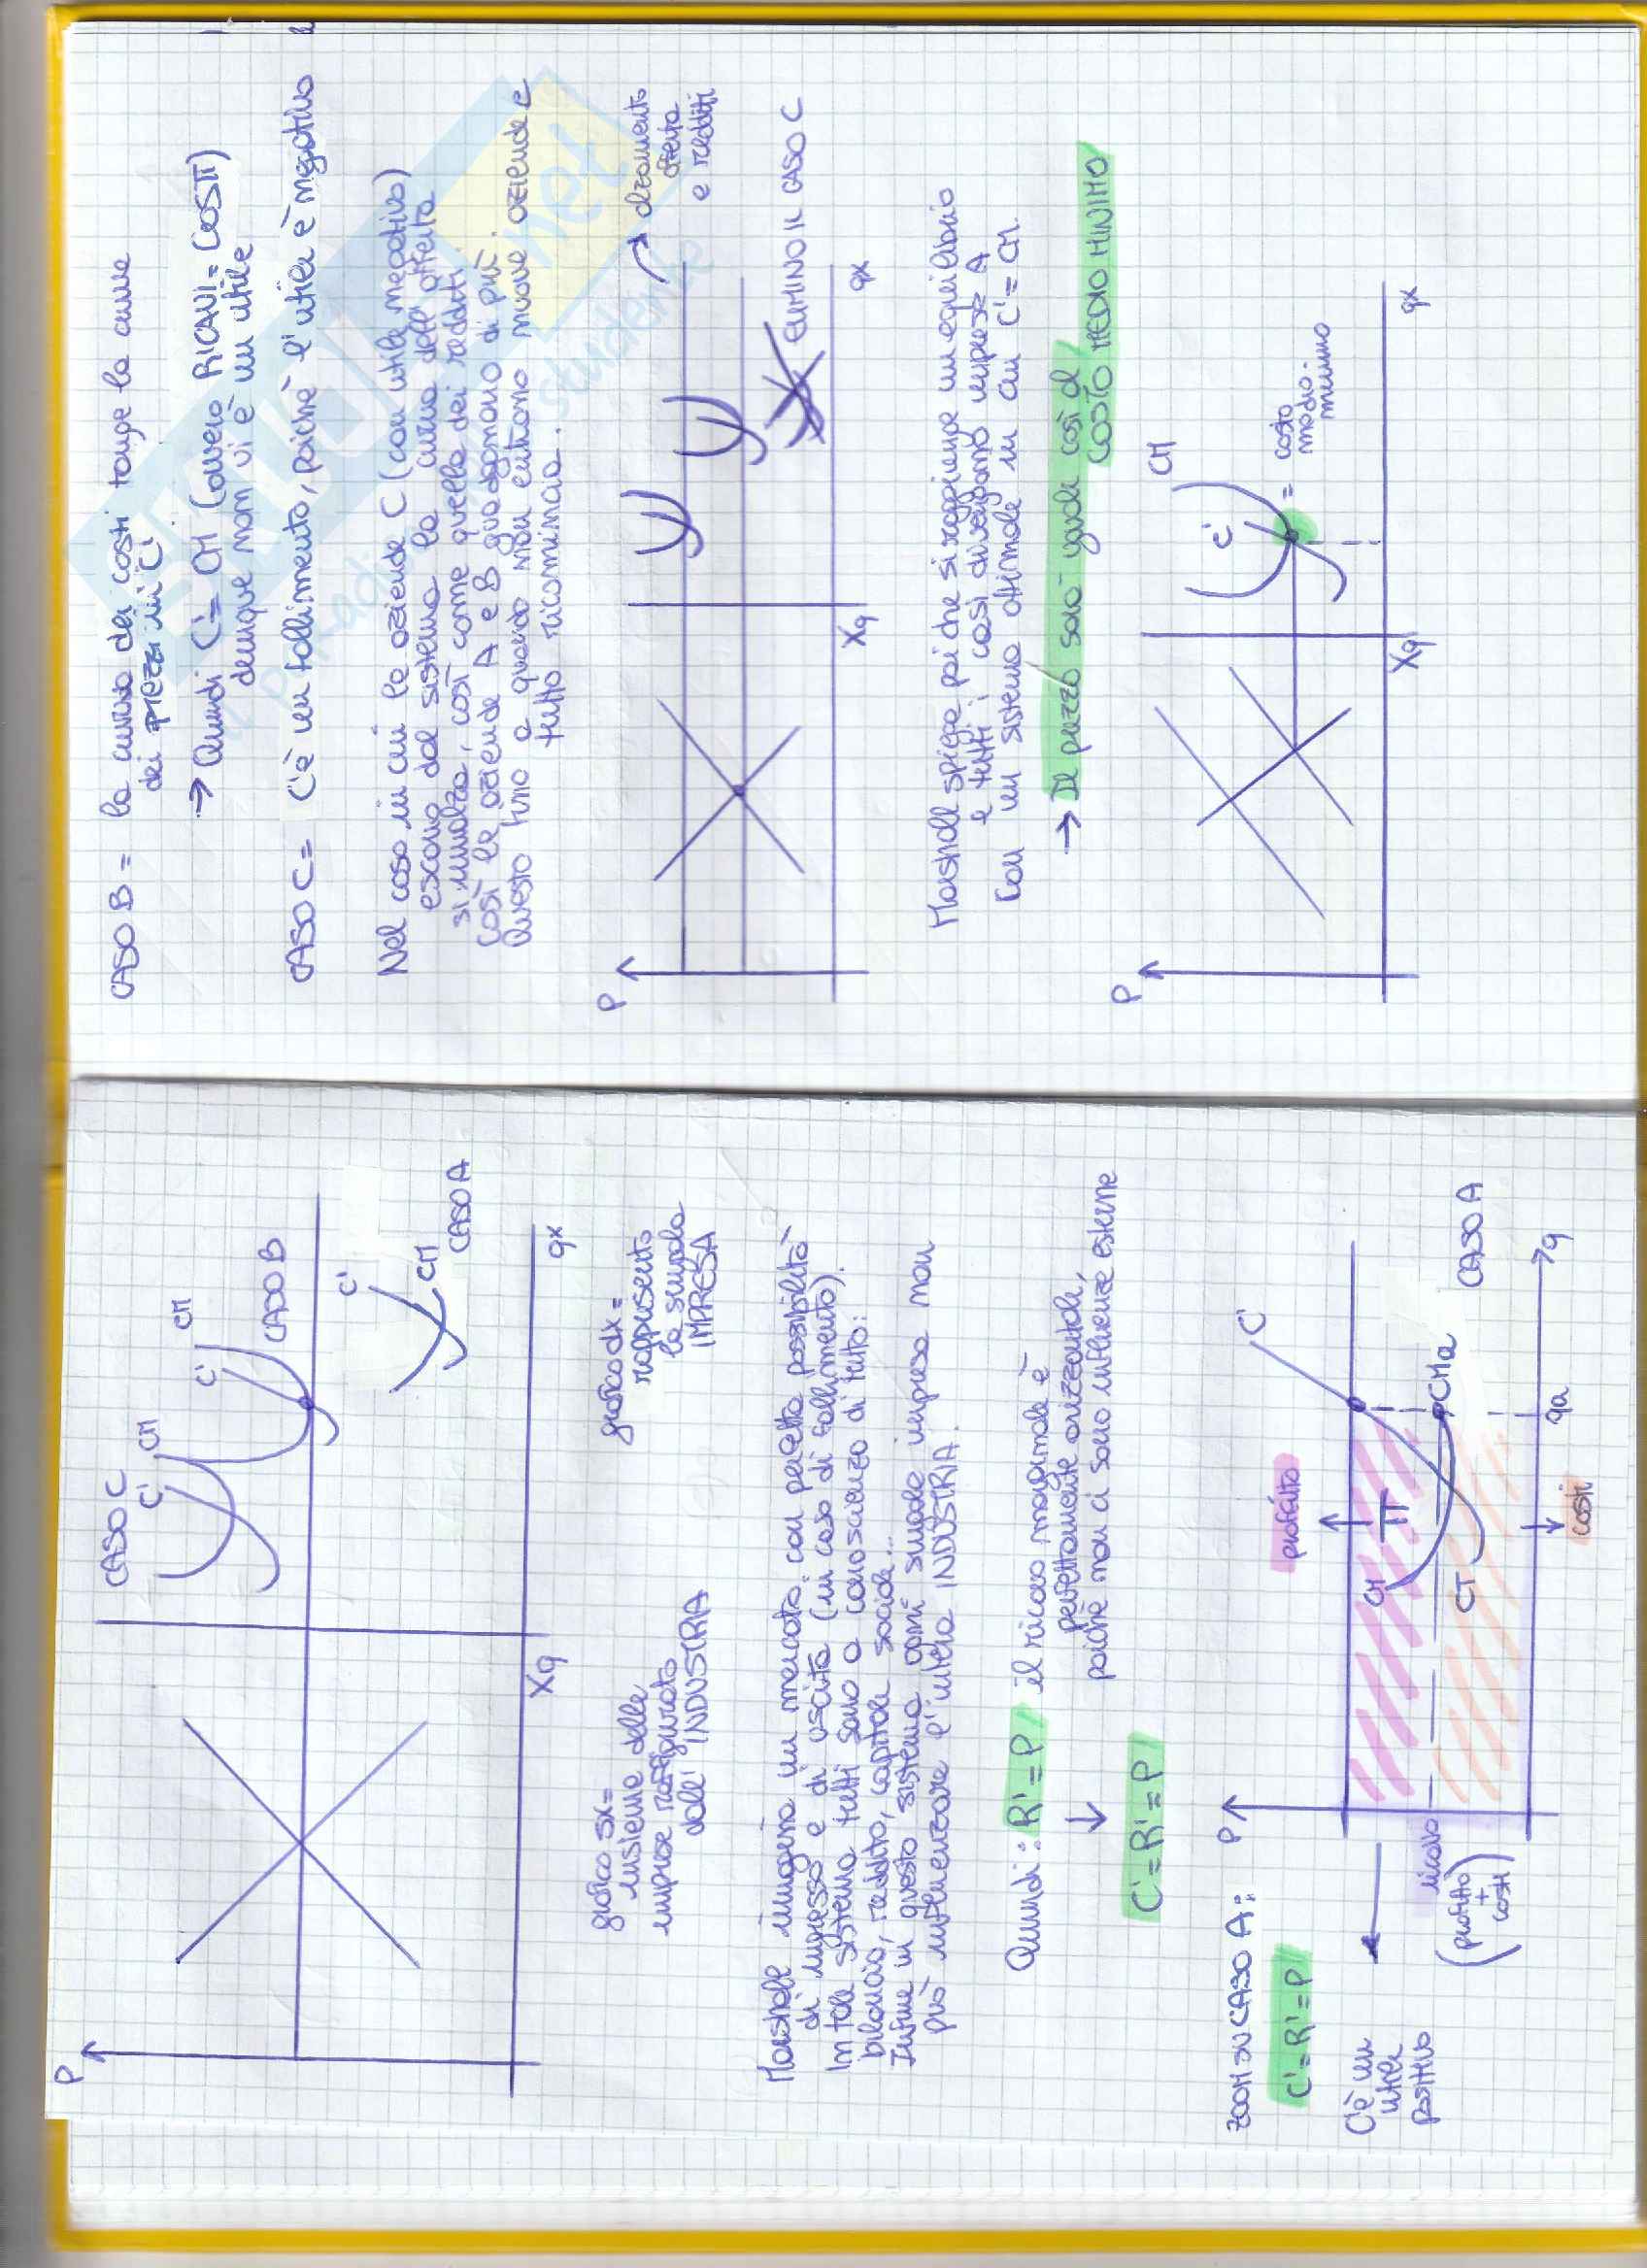 P
CASO C
C'
CM
C'
CM
CASO B
C'
CM
CASO A
Xq
qx
grafico sx =
insieme delle
imprese raffigurato
dall'INDUSTRIA
grafico dx =
rappresento
la singola
IMPRESA
Marshall immagina un mercato: con perfetta possibilità
di ingresso e di uscita (in caso di fallimento).
In tale sistema tutti sono a conoscienza di tutto:
bilancio, reddito, capitale sociale...
Infine in questo sistema ogni singola impresa non
può influenzare l'intera INDUSTRIA.
Quindi: R' = P il ricavo marginale è
perfettamente orizzontale,
poichè non ci sono influenze esterne
↓
C' = R' = P
ZOOM SU CASO A:
C' = R' = P
C'è un
utile
positivo
P
profitto
C'
π
CM
CMa
CT
CASO A
ricavo
(profitto
+
costi)
qa
q
costi
CASO B = la curva dei costi tange la curva
dei prezzi in C'
→ Quindi C' = CM (ovvero RICAVI = COSTI)
dunque non vi è un utile
CASO C = C'è un fallimento, poichè l'utile è negativo
Nel caso in cui le aziende C (con utile negativo)
escano dal sistema la curva dell'offerta
si innalza, così come quella dei redditi.
Così le aziende A e B guadagnano di più.
Questo fino a quando non entrano nuove aziende e
tutto ricomincia.
P
→ aumento
offerta
e redditi
ELIMINO IL CASO C
Xq
qx
Marshall spiega poi che si raggiunge un equilibrio
e tutti i casi divengono imprese A
Con un sistema ottimale in cui C' = CM.
→ Il prezzo sarà uguale così al
COSTO MEDIO MINIMO
P
C'
CM
= costo
medio
minimo
Xq
qx
eku net
studente